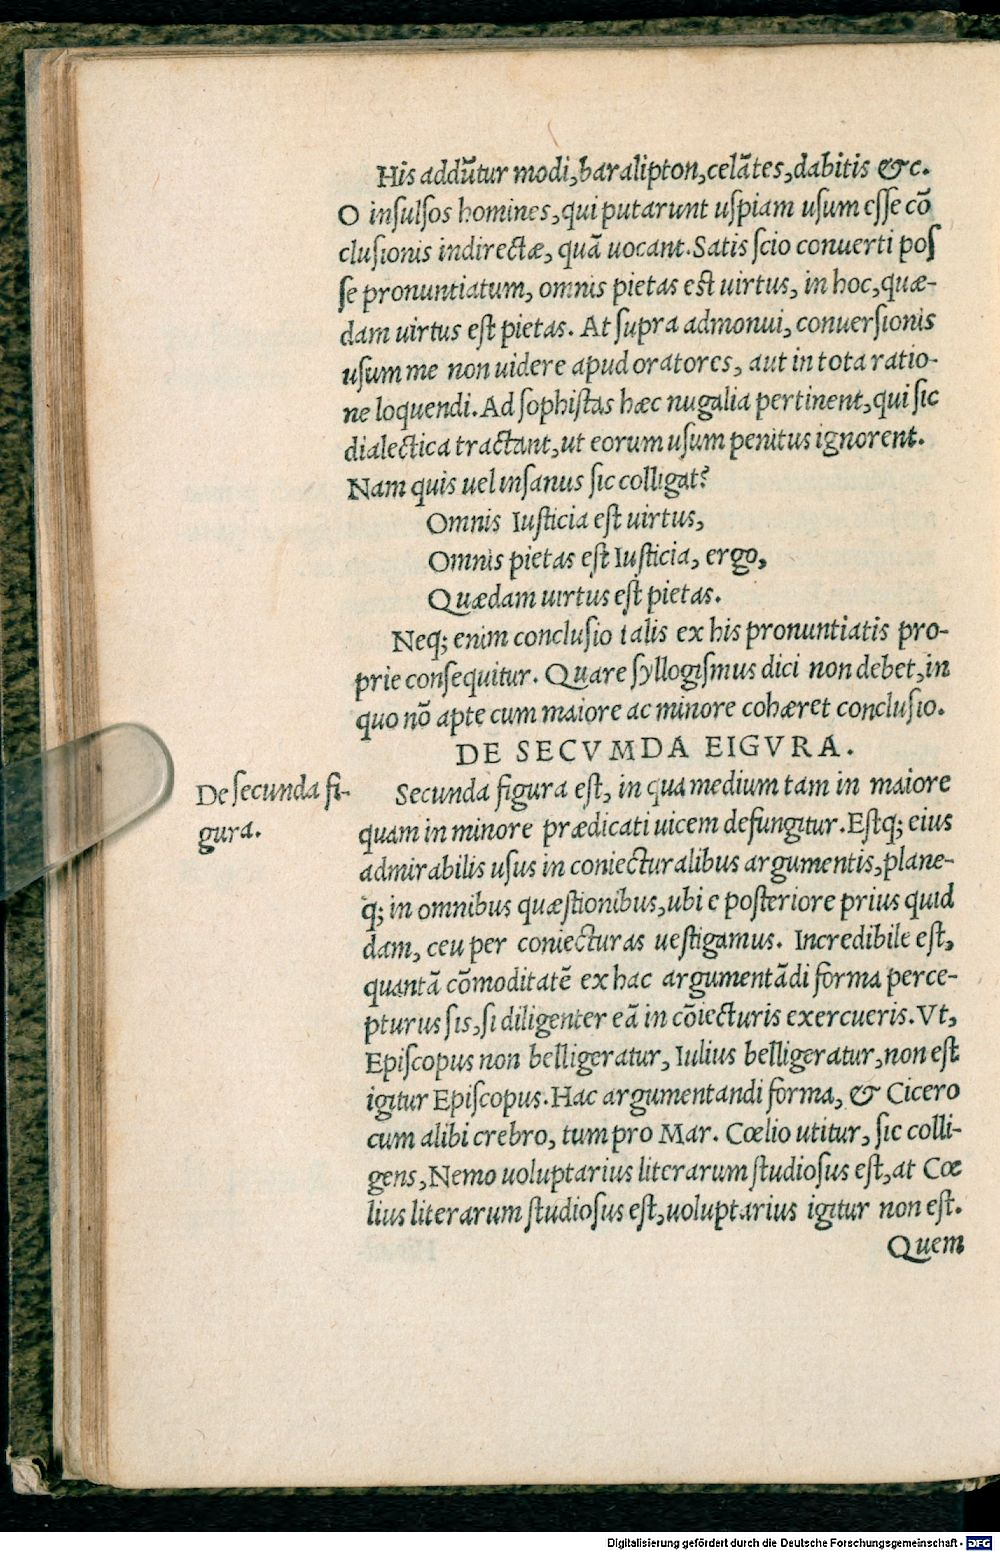 His addūtur modi, baralipton, celātes, dabitis &c.
O insulsos homines, qui putarunt uspiam usum esse cō
clusionis indirectæ, quā uocant. Satis scio conuerti pos
se pronuntiatum, omnis pietas est uirtus, in hoc, quæ-
dam uirtus est pietas. At supra admonui, conuersionis
usum me non uidere apud oratores, aut in tota ratio-
ne loquendi. Ad sophistas hæc nugalia pertinent, qui sic
dialectica tractant, ut eorum usum penitus ignorent.
Nam quis uel insanus sic colligat?
Omnis Iusticia est uirtus,
Omnis pietas est Iusticia, ergo,
Quædam uirtus est pietas.
Neq; enim conclusio talis ex his pronuntiatis pro-
prie consequitur. Quare syllogismus dici non debet, in
quo nō apte cum maiore ac minore cohæret conclusio.
DE SECVMDA EIGVRA.
De secunda fi-
gura.
Secunda figura est, in qua medium tam in maiore
quam in minore prædicati uicem defungitur. Estq; eius
admirabilis usus in coniecturalibus argumentis, plane-
q; in omnibus quæstionibus, ubi e posteriore prius quid
dam, ceu per coniecturas uestigamus. Incredibile est,
quantā cōmoditatē ex hac argumentādi forma perce-
pturus sis, si diligenter eā in cōiecturis exercueris. Vt,
Episcopus non belligeratur, Iulius belligeratur, non est
igitur Episcopus. Hac argumentandi forma, & Cicero
cum alibi crebro, tum pro Mar. Cœlio utitur, sic colli-
gens, Nemo uoluptarius literarum studiosus est, at Cœ
lius literarum studiosus est, uoluptarius igitur non est.
Quem
Digitalisierung gefördert durch die Deutsche Forschungsgemeinschaft - DFG